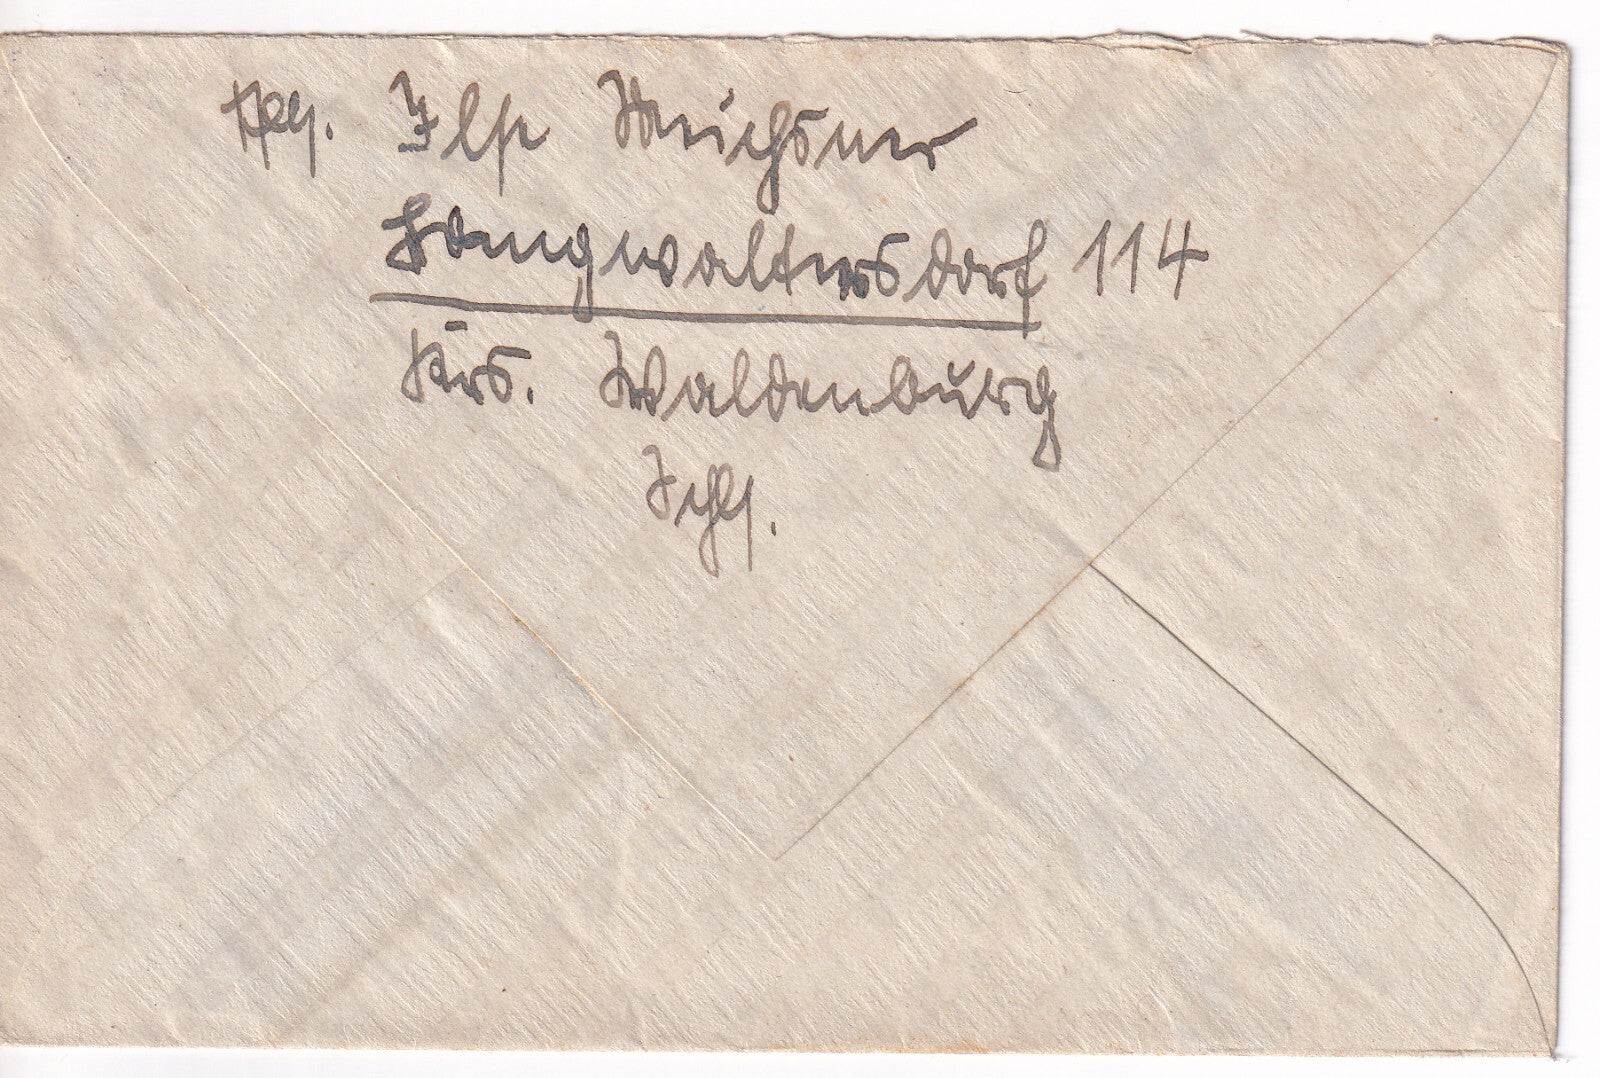 Abs. Ilse Meichsner
Langwaltersdorf 114
Krs. Waldenburg
Schls.